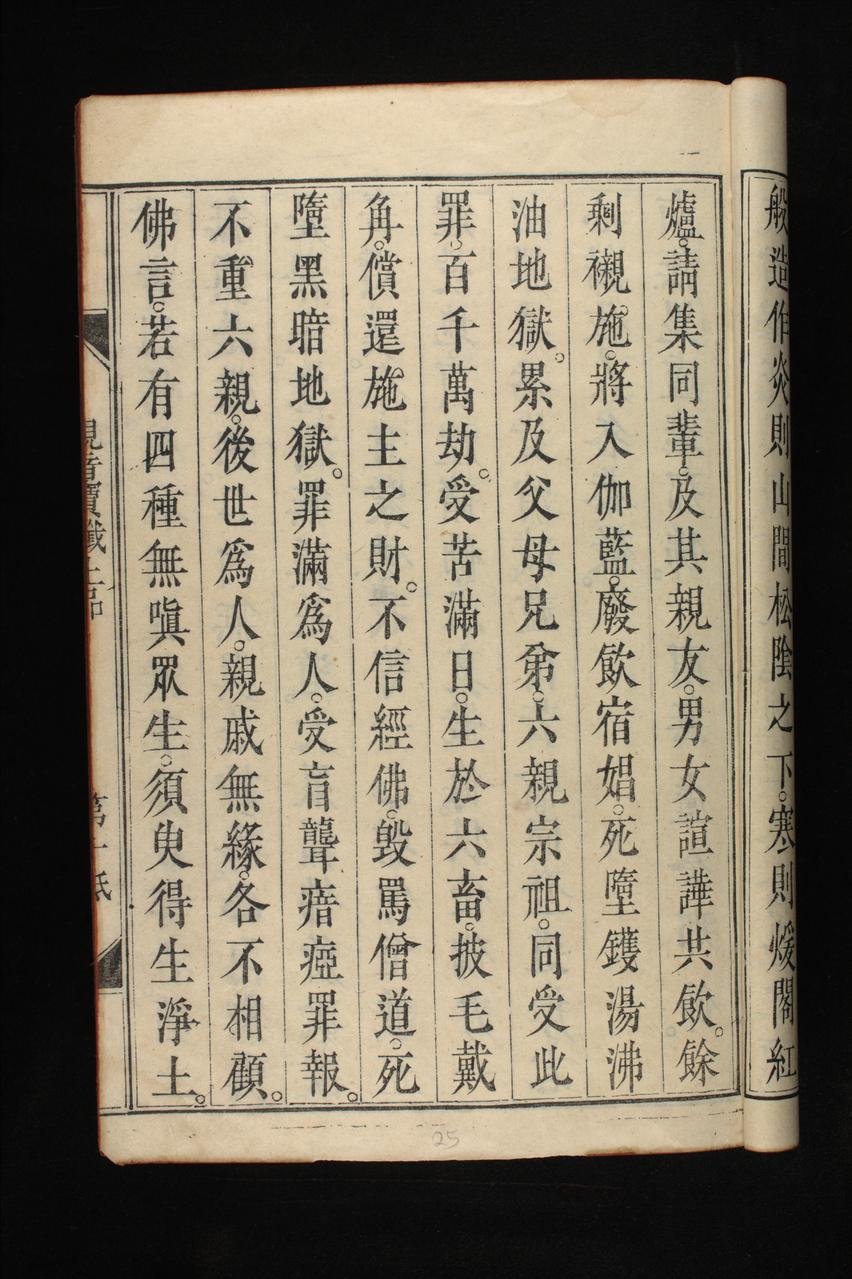 般造作炎則山間松陰之下。寒則煖閣紅
爐。請集同輩。及其親友。男女諠譁共飲。餘
剩襯施。將入伽藍。廢飲宿娼。死墮鑊湯沸
油地獄。累及父母兄弟。六親宗祖。同受此
罪。百千萬劫。受苦滿日。生於六畜。披毛戴
角。償還施主之財。不信經佛。毀罵僧道。死
墮黑暗地獄。罪滿爲人。受盲聾瘖瘂罪報。
不重六親。後世爲人。親戚無緣。各不相顧。
佛言。若有四種無嗔眾生。須臾得生淨土。
觀音寶懺上品
第十紙
25